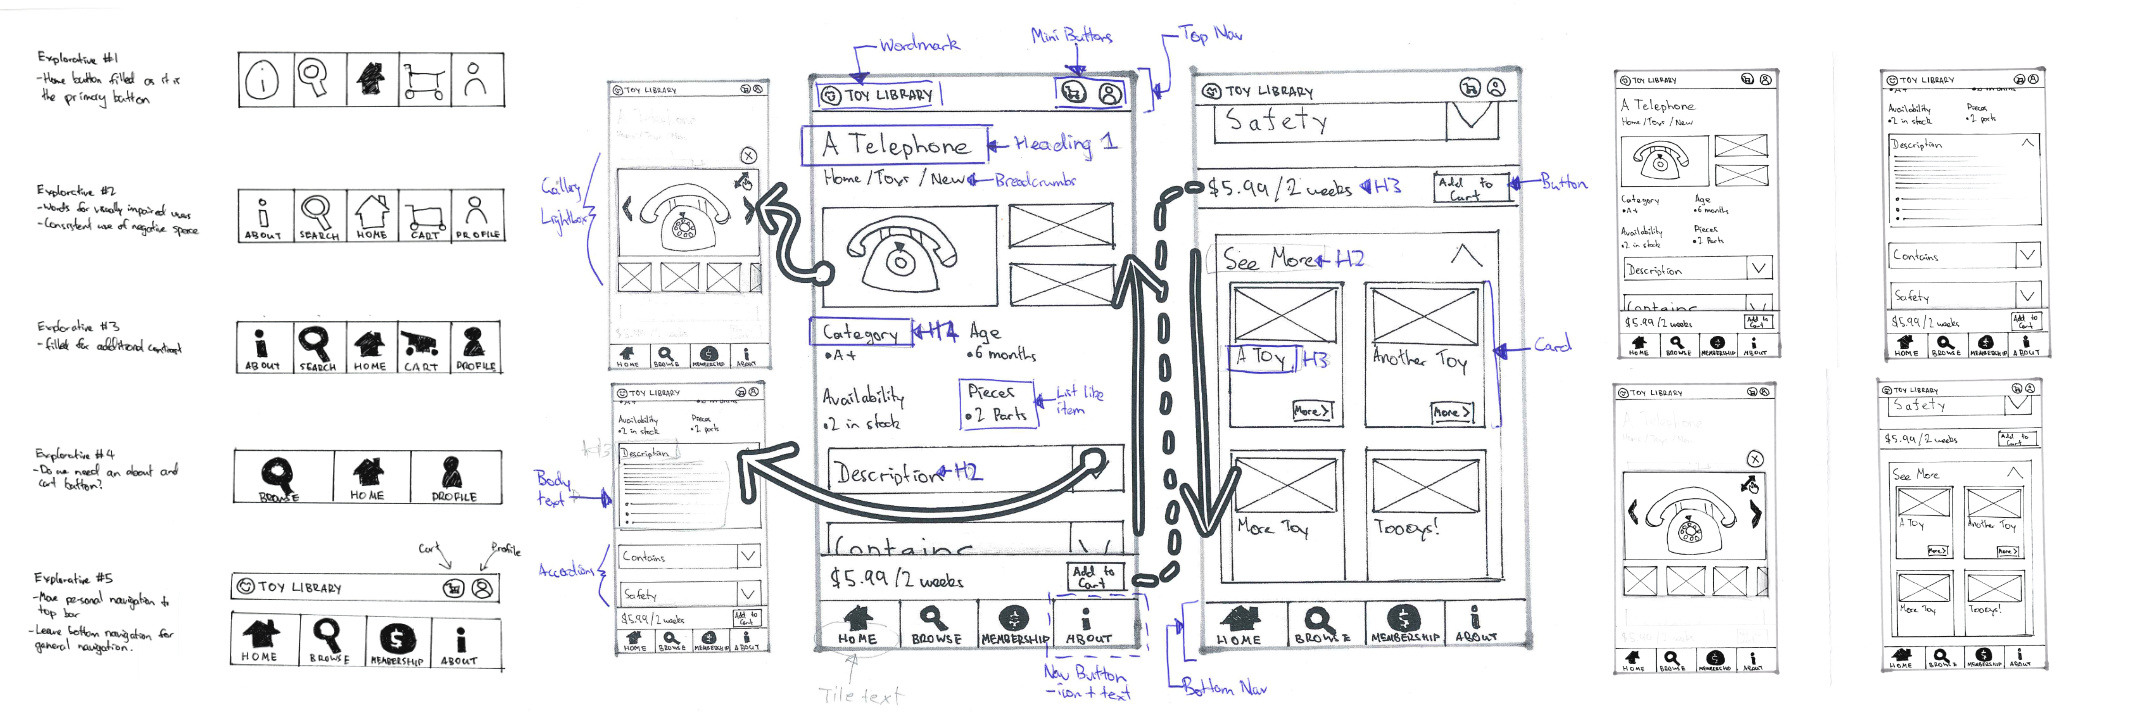 Explorative #1
-Home button filled as it is
the primary button
Explorative #2
-Words for visually impaired uses
-Consistent use of negative space
ABOUT
SEARCH
HOME
CART
PROFILE
Explorative #3
-filled for additional contrast
ABOUT
SEARCH
HOME
CART
PROFILE
Explorative #4
-Do we need an about and
cart button?
BROWSE
HOME
PROFILE
Explorative #5
-Move personal navigation to
top bar
-Leave bottom navigation for
general navigation.
Cart
Profile
TOY LIBRARY
HOME
BROWSE
MEMBERSHIP
ABOUT
Gallery
Lightbox
TOY LIBRARY
HOME
BROWSE
MEMBERSHIP
ABOUT
Body
text
Accordions
TOY LIBRARY
Availability
•2 in stock
Pieces
•2 parts
Description
Contains
Safety
$5.99/2 weeks
Add to
Cart
HOME
BROWSE
MEMBERSHIP
ABOUT
Wordmark
Mini Buttons
Top Nav
TOY LIBRARY
A Telephone
Heading 1
Home/Toys/New
Breadcrumbs
Category
H4
•A+
Age
•6 months
Availability
•2 in stock
Pieces
•2 Parts
List like
item
Description
H2
Contains
$5.99/2 weeks
Add to
Cart
HOME
BROWSE
MEMBERSHIP
ABOUT
Tile text
Nav Button
-icon + text
TOY LIBRARY
Safety
$5.99/2 weeks
H3
Add to
Cart
Button
See More
H2
A Toy
H3
More>
Another Toy
More>
Card
More Toy
Toooys!
HOME
BROWSE
MEMBERSHIP
ABOUT
Bottom Nav
TOY LIBRARY
A Telephone
Home/Toys/New
Category
•A+
Age
•6 months
Availability
•2 in stock
Pieces
•2 Parts
Description
Contains
$5.99/2 weeks
Add to
Cart
HOME
BROWSE
MEMBERSHIP
ABOUT
TOY LIBRARY
Availability
•2 in stock
Pieces
•2 parts
Description
Contains
Safety
$5.99/2 weeks
Add to
Cart
HOME
BROWSE
MEMBERSHIP
ABOUT
TOY LIBRARY
HOME
BROWSE
MEMBERSHIP
ABOUT
TOY LIBRARY
Safety
$5.99/2 weeks
Add to
Cart
See More
A Toy
More>
Another Toy
More>
More Toy
Toooys!
HOME
BROWSE
MEMBERSHIP
ABOUT